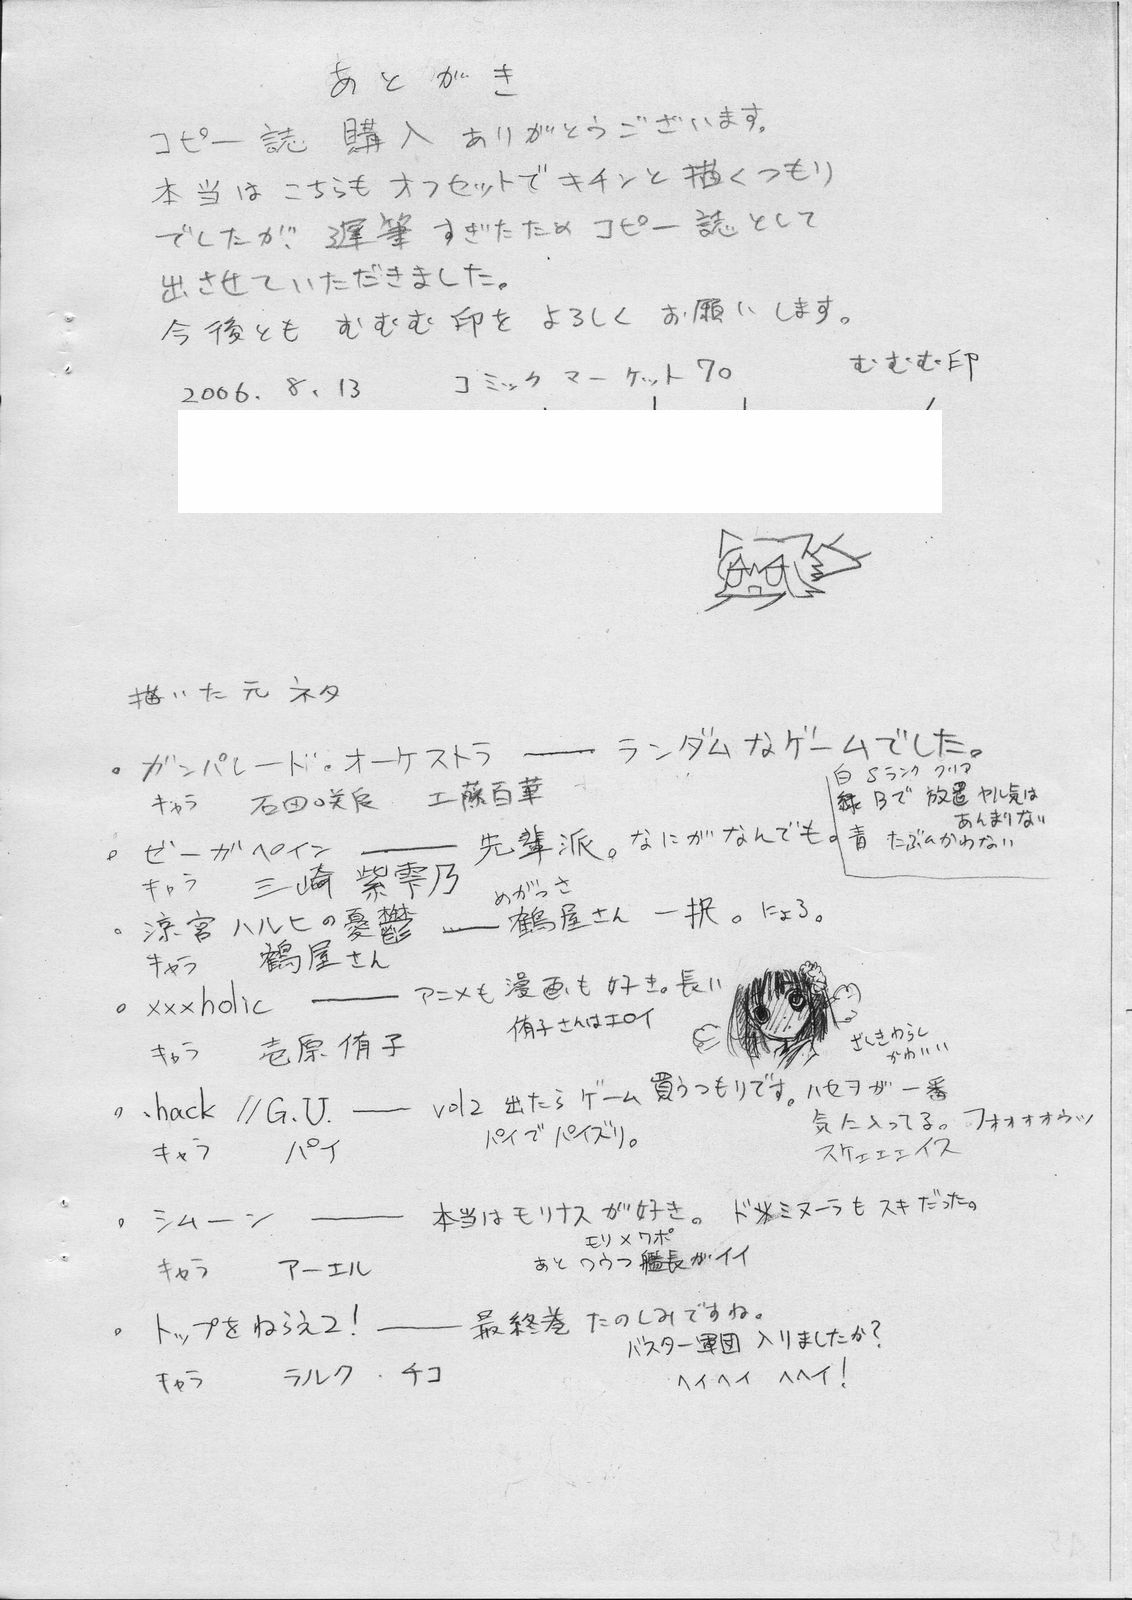 あとがき
コピー誌 購入 ありがとうございます。
本当は こちらも オフセットで キチンと 描くつもり
でしたが、遅筆 すぎたため コピー誌として
出させていただきました。
今後とも むむむ印を よろしく お願いします。
むむむ印
2006. 8. 13 コミックマーケット70
描いた元ネタ
・ガンパレード・オーケストラ ―― ランダムなゲームでした。
白 Sランク クリア
緑 Bで 放置 ヤル気は
あんまりない
青 たぶんかわない
キャラ 石田咲良 工藤百華
・ゼーガペイン ―― 先輩派。なにがなんでも。
キャラ 三崎 紫雫乃
めがっさ
・涼宮ハルヒの憂鬱 ―― 鶴屋さん 一択。にょろ。
キャラ 鶴屋さん
・xxxholic ―― アニメも 漫画も 好き。長い
侑子さんはエロイ
ざしきわらし
かわいい
キャラ 壱原 侑子
・.hack //G.U. ―― vol2 出たら ゲーム 買うつもりです。ハセヲが 一番
気に入ってる。フオォォォウッ
パイで パイズリ。
スケェェェイス
キャラ パイ
・シムーン ―― 本当は モリナスが 好き。ドミヌーラも スキだった。
モリ×ワポ
あと ワウフ 艦長が イイ
キャラ アーエル
・トップをねらえ2! ―― 最終巻 たのしみですね。
バスター軍団 入りましたか?
キャラ ラルク・チコ
ヘイヘイ ヘヘイ!